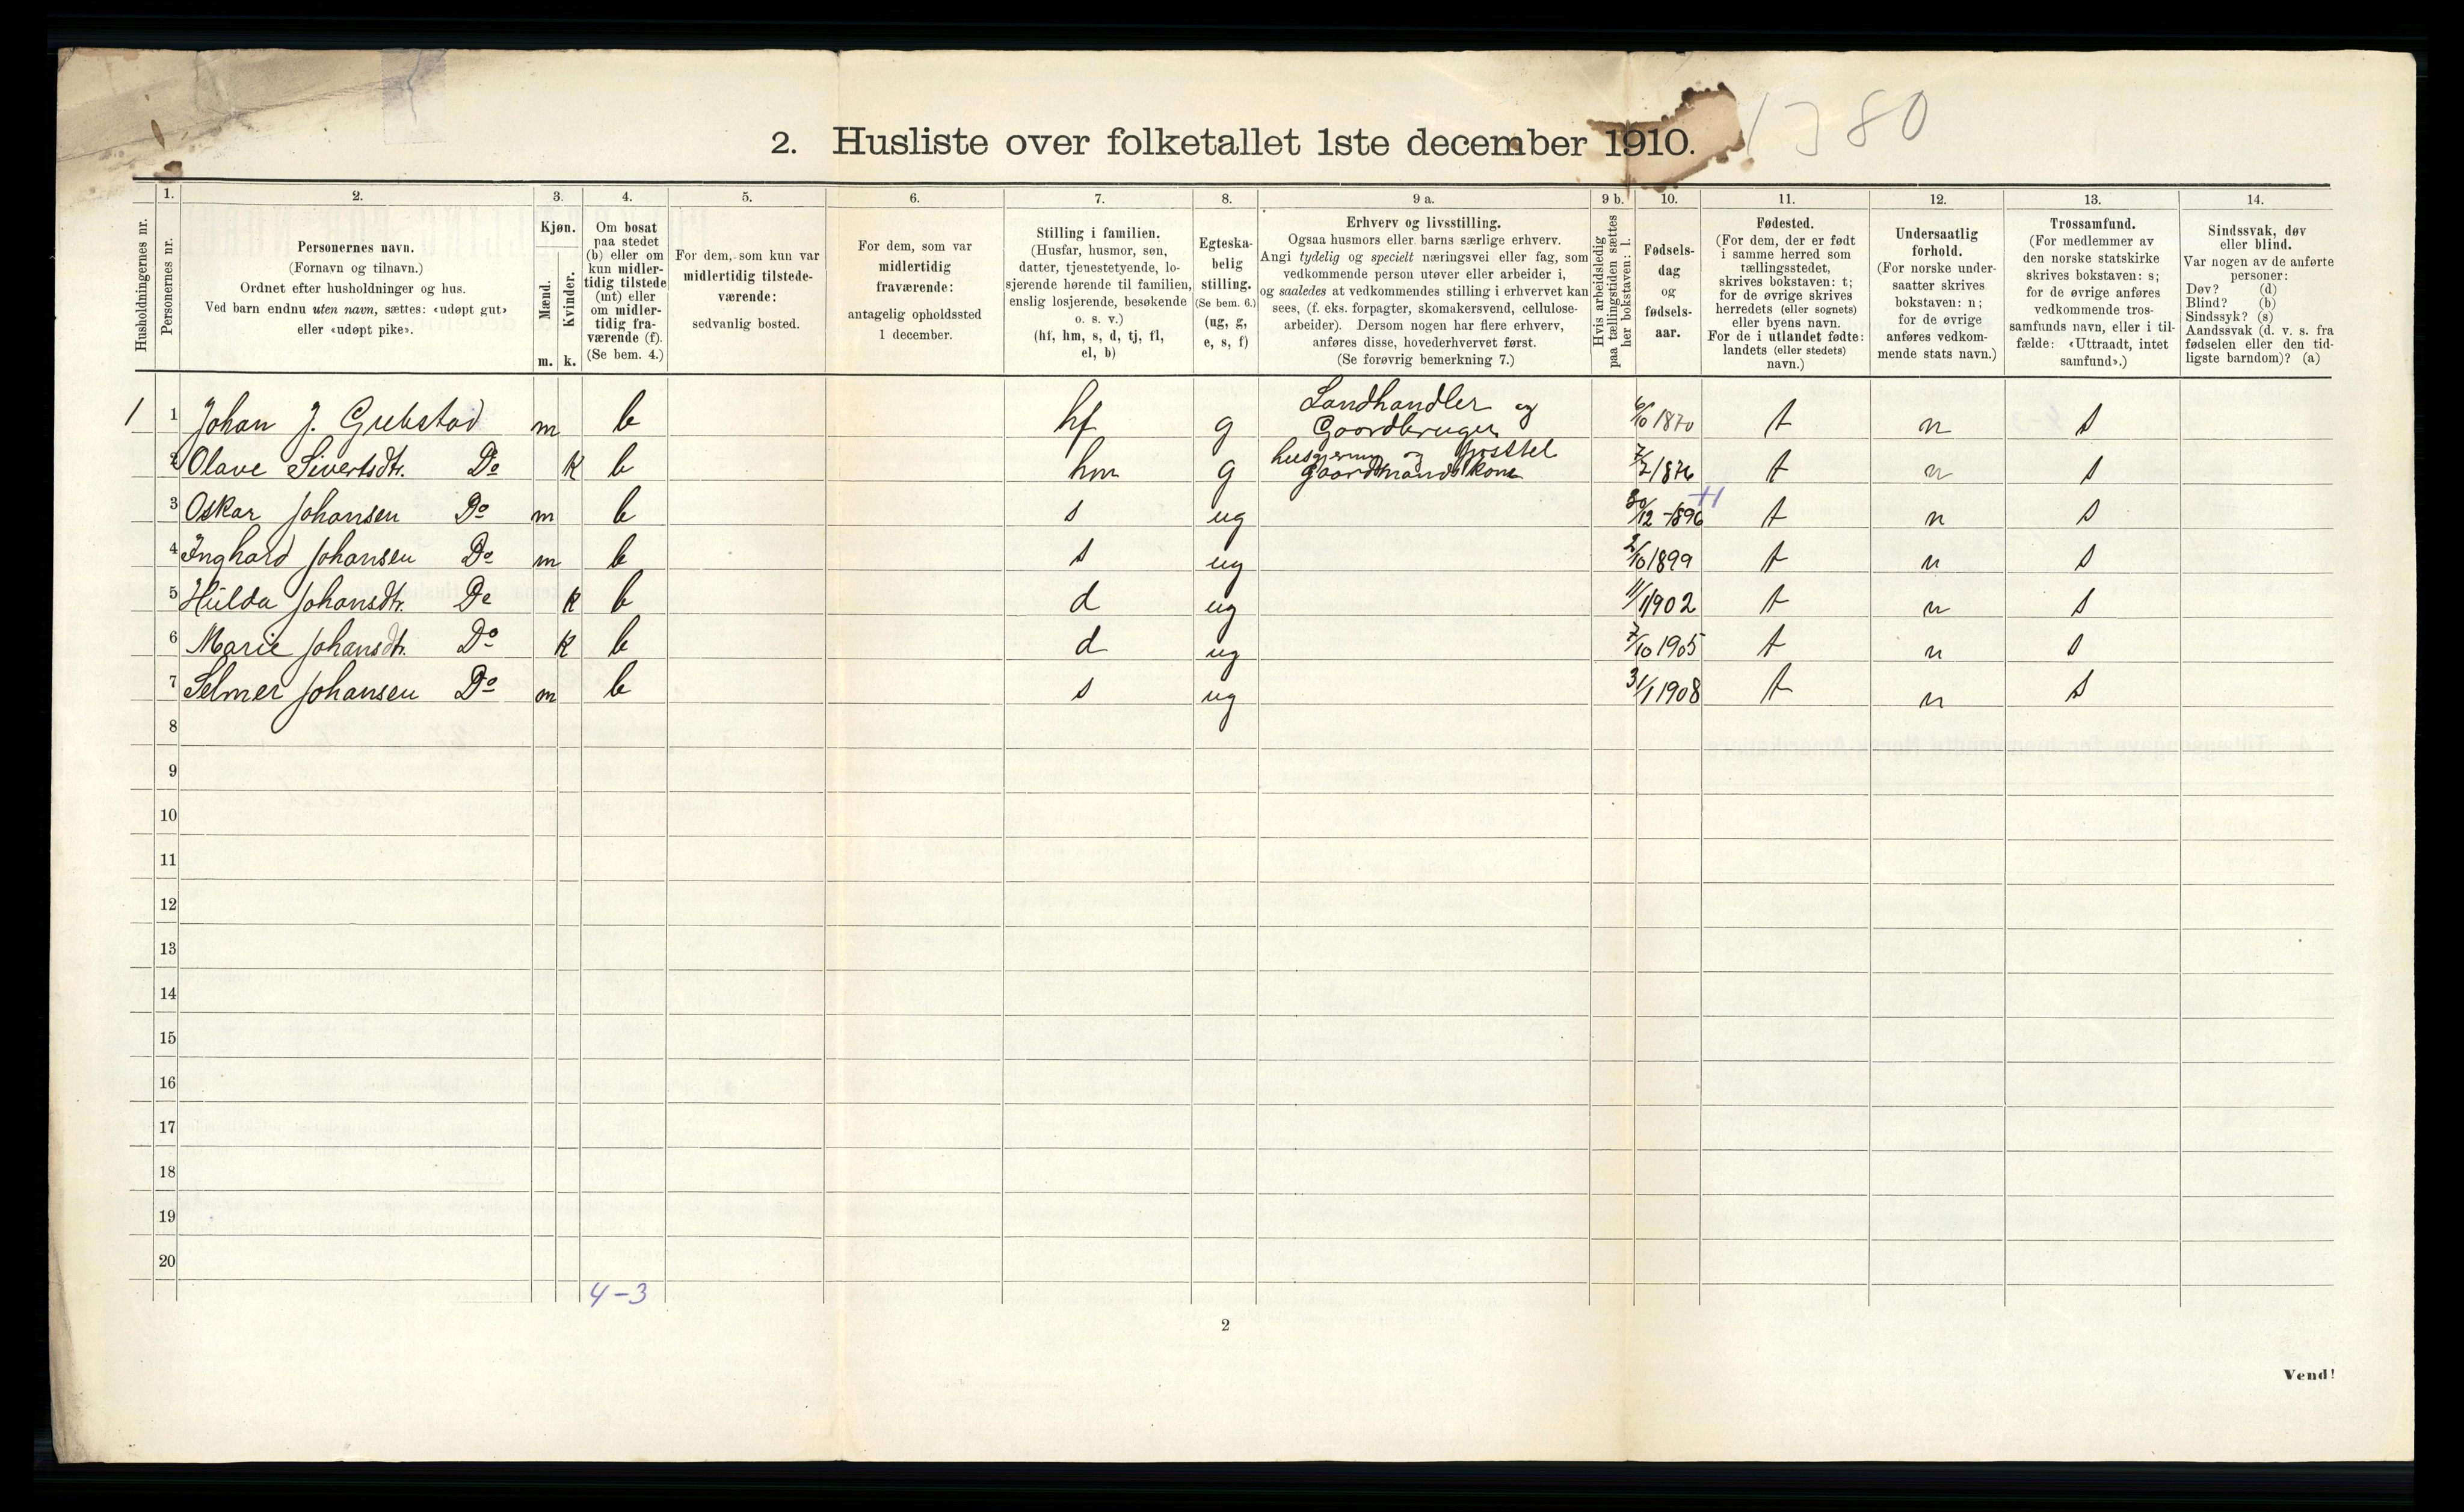 1380
2. Husliste over folketallet 1ste december 1910.
Husholdningernes nr.
1.
Personernes nr.
2.
Personernes navn.
(Fornavn og tilnavn.)
Ordnet efter husholdninger og hus.
Ved barn endnu uten navn, sættes: «udøpt gut»
eller «udøpt pike».
3.
Kjøn.
Mænd.
Kvinder.
m. k.
4.
Om bosat
paa stedet
(b) eller om
kun midler-
tidig tilstede
(mt) eller
om midler-
tidig fra-
værende (f).
(Se bem. 4.)
5.
For dem, som kun var
midlertidig tilstede-
værende:
sedvanlig bosted.
6.
For dem, som var
midlertidig
fraværende:
antagelig opholdssted
1 december.
7.
Stilling i familien.
(Husfar, husmor, søn,
datter, tjenestetyende, lo-
sjerende hørende til familien,
enslig losjerende, besøkende
o. s. v.)
(hf, hm, s, d, tj, fl,
el, b)
8.
Egteska-
belig
stilling.
(Se bem. 6.)
(ug, g,
e, s, f)
9 a.
Erhverv og livsstilling.
Ogsaa husmors eller barns særlige erhverv.
Angi tydelig og specielt næringsvei eller fag, som
vedkommende person utøver eller arbeider i,
og saaledes at vedkommendes stilling i erhvervet kan
sees, (f. eks. forpagter, skomakersvend, cellulose-
arbeider). Dersom nogen har flere erhverv,
anføres disse, hovederhvervet først.
(Se forøvrig bemerkning 7.)
9 b.
Hvis arbeidsledig
paa tællingstiden sættes
her bokstaven: l.
10.
Fødsels-
dag
og
fødsels-
aar.
11.
Fødested.
(For dem, der er født
i samme herred som
tællingsstedet,
skrives bokstaven: t;
for de øvrige skrives
herredets (eller sognets)
eller byens navn.
For de i utlandet fødte:
landets (eller stedets)
navn.)
12.
Undersaatlig
forhold.
(For norske under-
saatter skrives
bokstaven: n;
for de øvrige
anføres vedkom-
mende stats navn.)
13.
Trossamfund.
(For medlemmer av
den norske statskirke
skrives bokstaven: s;
for de øvrige anføres
vedkommende tros-
samfunds navn, eller i til-
fælde: «Uttraadt, intet
samfund».)
14.
Sindssvak, døv
eller blind.
Var nogen av de anførte
personer:
Døv? (d)
Blind? (b)
Sindssyk? (s)
Aandssvak (d. v. s. fra
fødselen eller den tid-
ligste barndom)? (a)
Landhandler og
1 1 Johan J. Grebstad m b hf g Gaardbruger 6/10 1870 t n s
husgjerning og posttel
2 Olave Sivertsdtr. Do k b hm g Gaardmandskone 7/7 1876 t n s
3 Oskar Johansen Do m b s ug 30/12 -1896 t n s
4 Inghard Johansen Do m b s ug 2/10 1899 t n s
5 Hilda Johansdtr. Do k b d ug 11/1 1902 t n s
6 Marie Johansdtr. Do k b d ug 7/10 1905 t n s
7 Selmer Johansen Do m b s ug 31/1 1908 t n s
8
9
10
11
12
13
14
15
16
17
18
19
20
4-3
2
Vend!